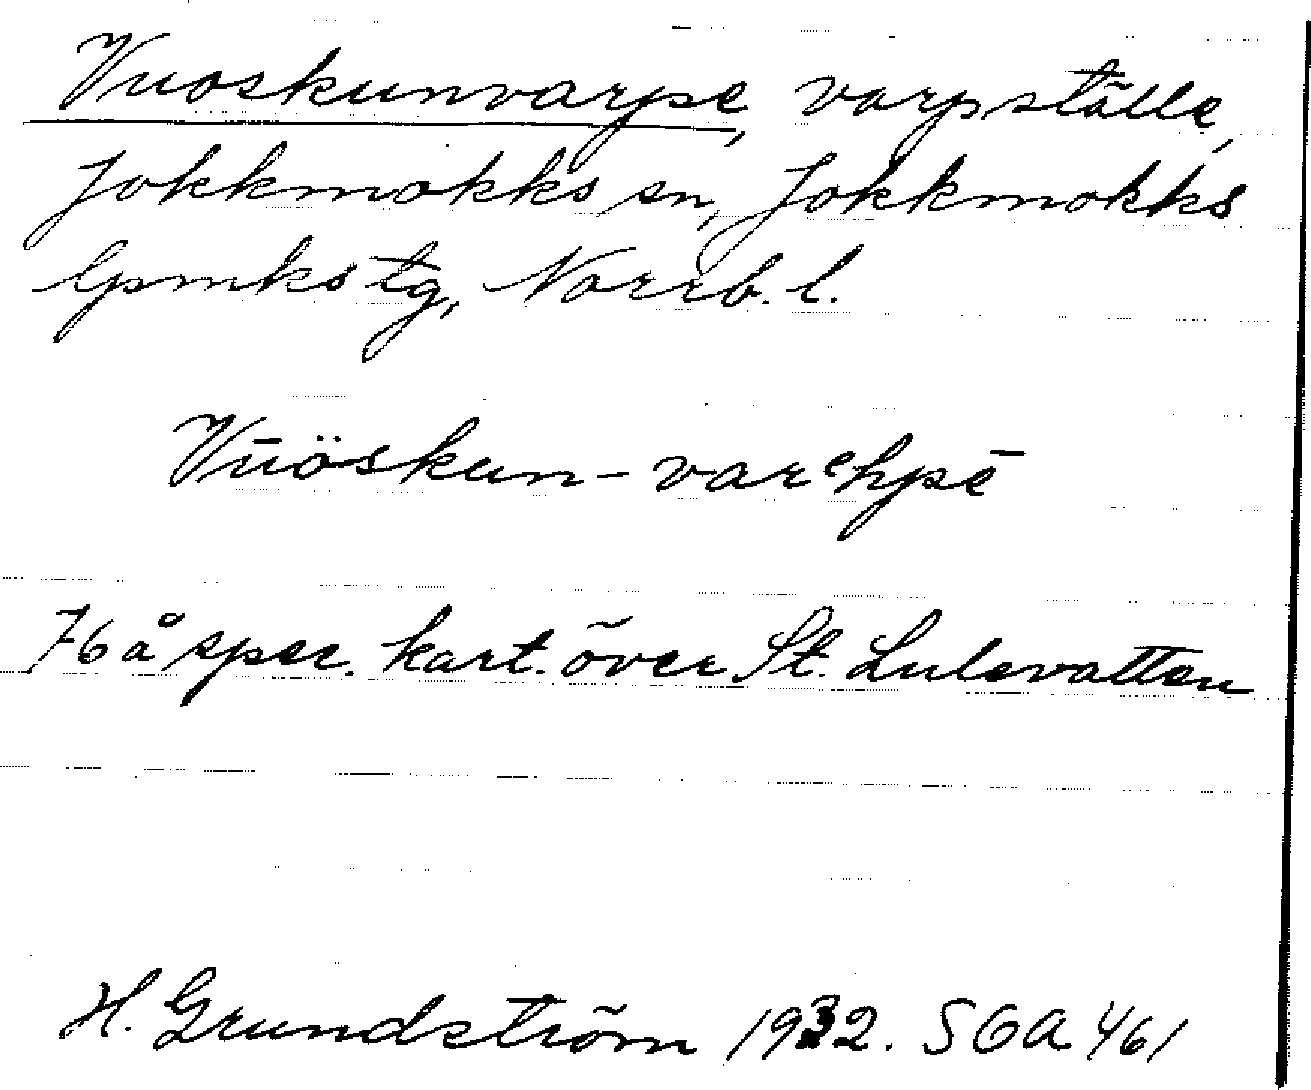 Vuoskunvarpe, varpställe,
Jokkmokks sn, Jokkmokks
lpmks tg, Norrb. l.
Vūöskun-varᵉhpē
76 å spec. kart. över St. Lulevatten
H. Grundström 1932. SOA 461